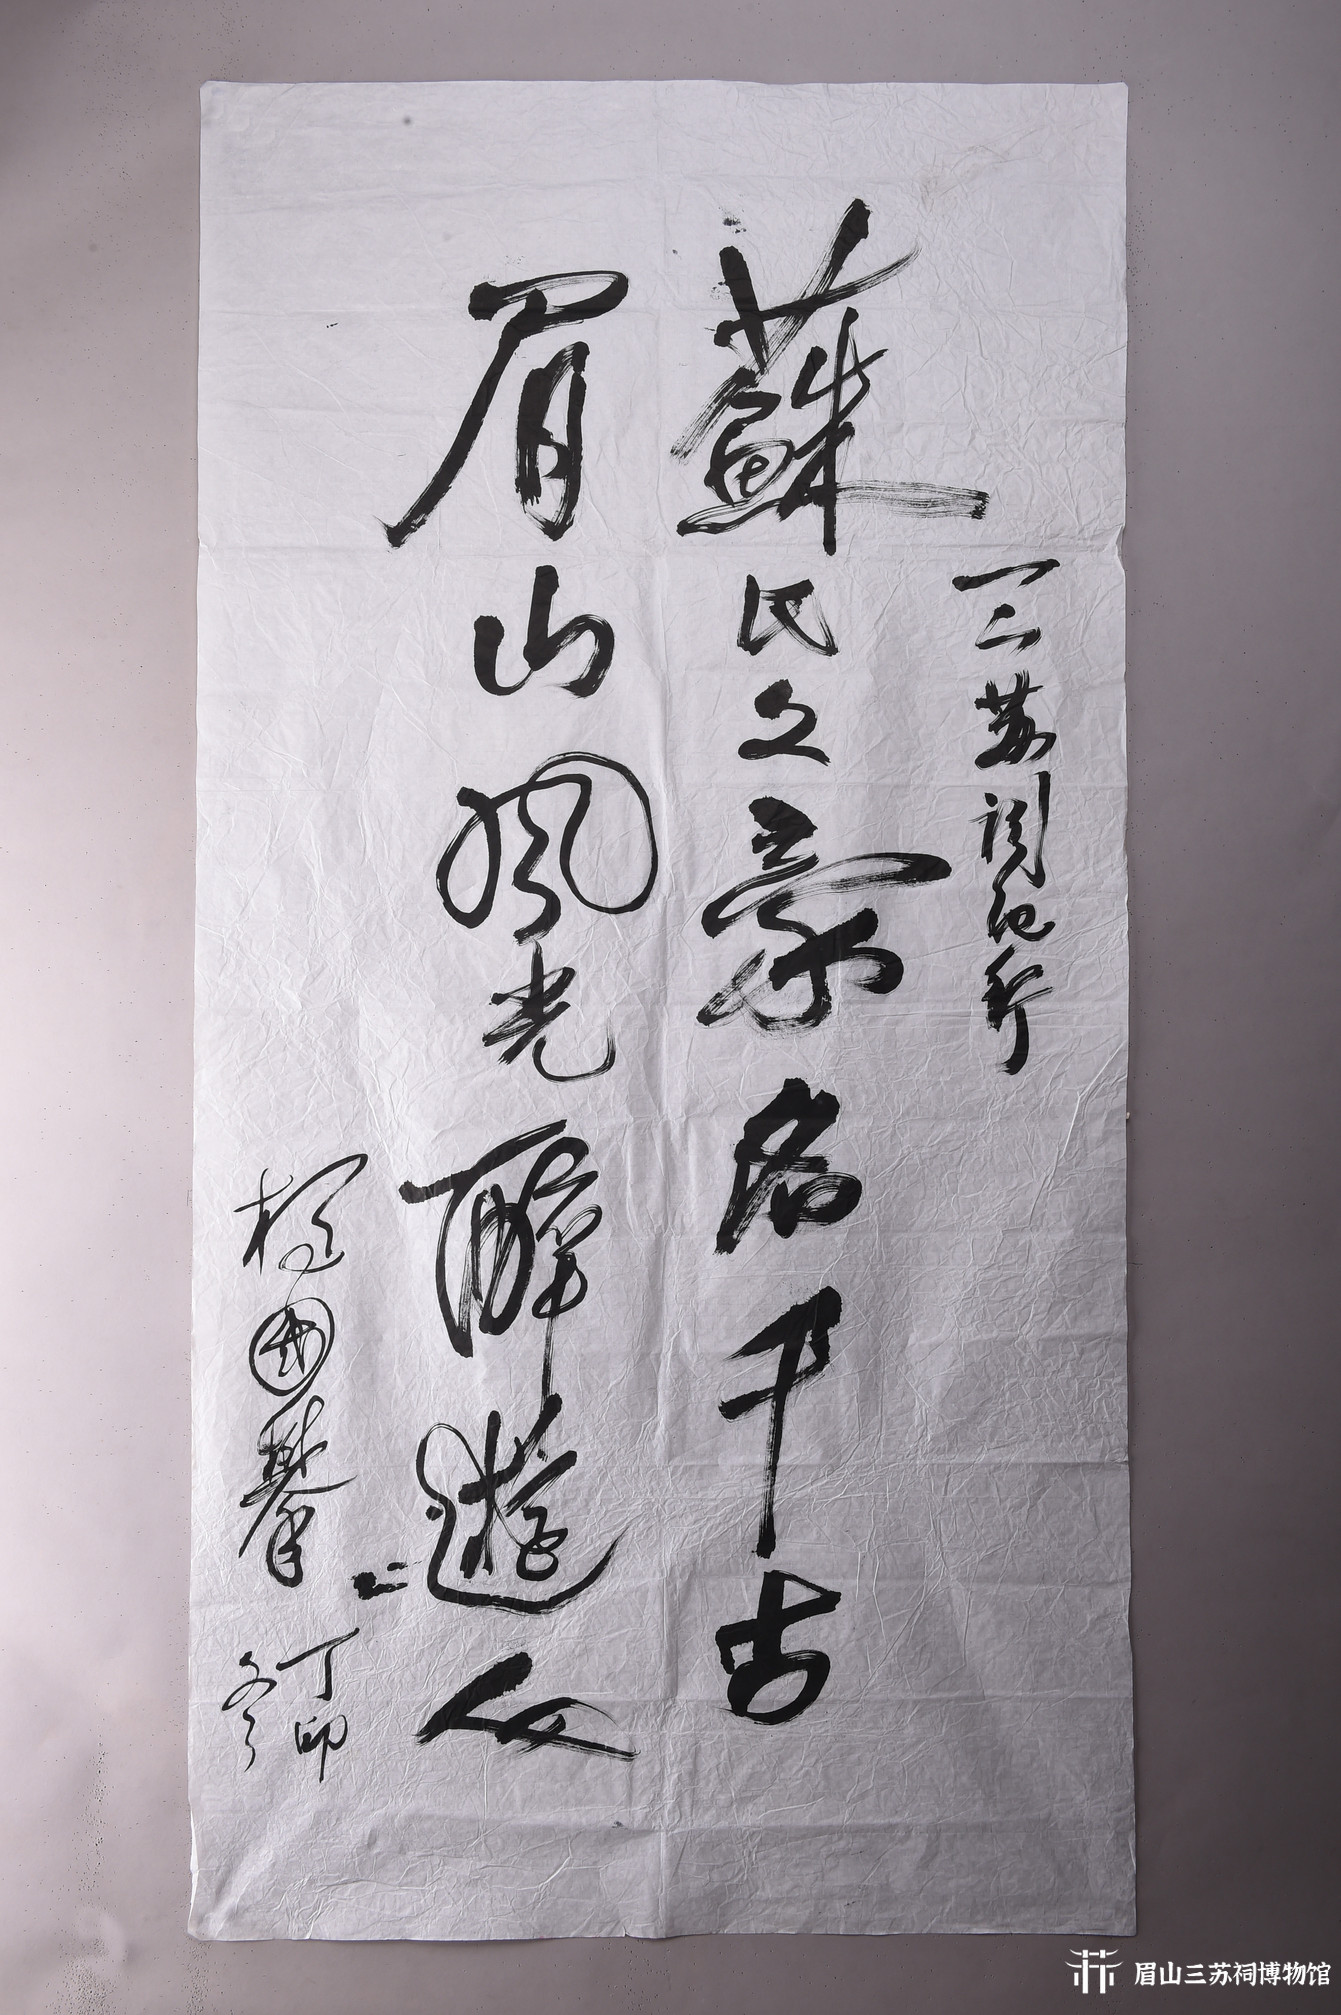 三苏祠纪行
蘇氏文豪名千古
眉山風光醉遊人
楊國攀
丁卯
冬
眉山三苏祠博物馆